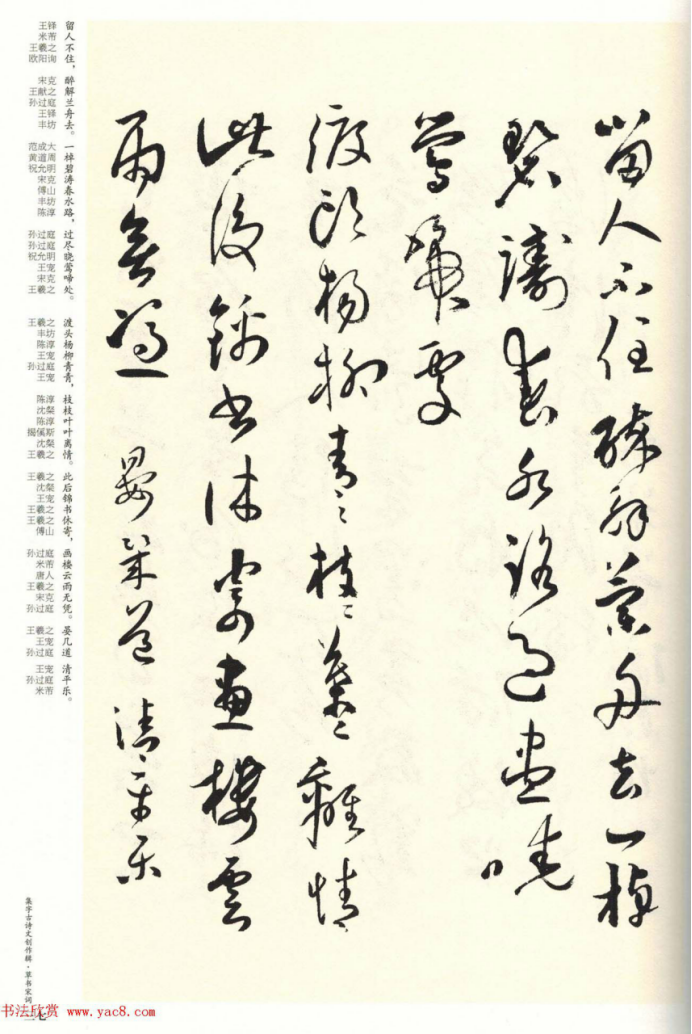 留人不住醉解蘭舟去一棹
碧濤春水路過盡曉
鶯啼處
渡頭楊柳青〻枝〻葉〻離情
此後錦書休寄畫樓雲
雨無憑 晏幾道 清平樂
留人不住，醉解兰舟去。一棹碧涛春水路，过尽晓莺啼处。渡头杨柳青青，枝枝叶叶离情。此后锦书休寄，画楼云雨无凭。晏几道 清平乐。
王铎
米芾
王羲之
欧阳询
宋克
王献之
孙过庭
王铎
丰坊
范成大
黄道周
祝允明
宋克
傅山
丰坊
陈淳
孙过庭
孙过庭
祝允明
王宠
宋克
王羲之
王羲之
丰坊
陈淳
王宠
孙过庭
王宠
陈淳
沈粲
陈淳
揭傒斯
沈粲
王羲之
王羲之
沈粲
王宠
王羲之
王羲之
傅山
孙过庭
米芾
唐人
王羲之
宋克
孙过庭
王羲之
王宠
孙过庭
王宠
孙过庭
米芾
集字古诗文创作辑·草书宋词
二七
书法欣赏 www.yac8.com